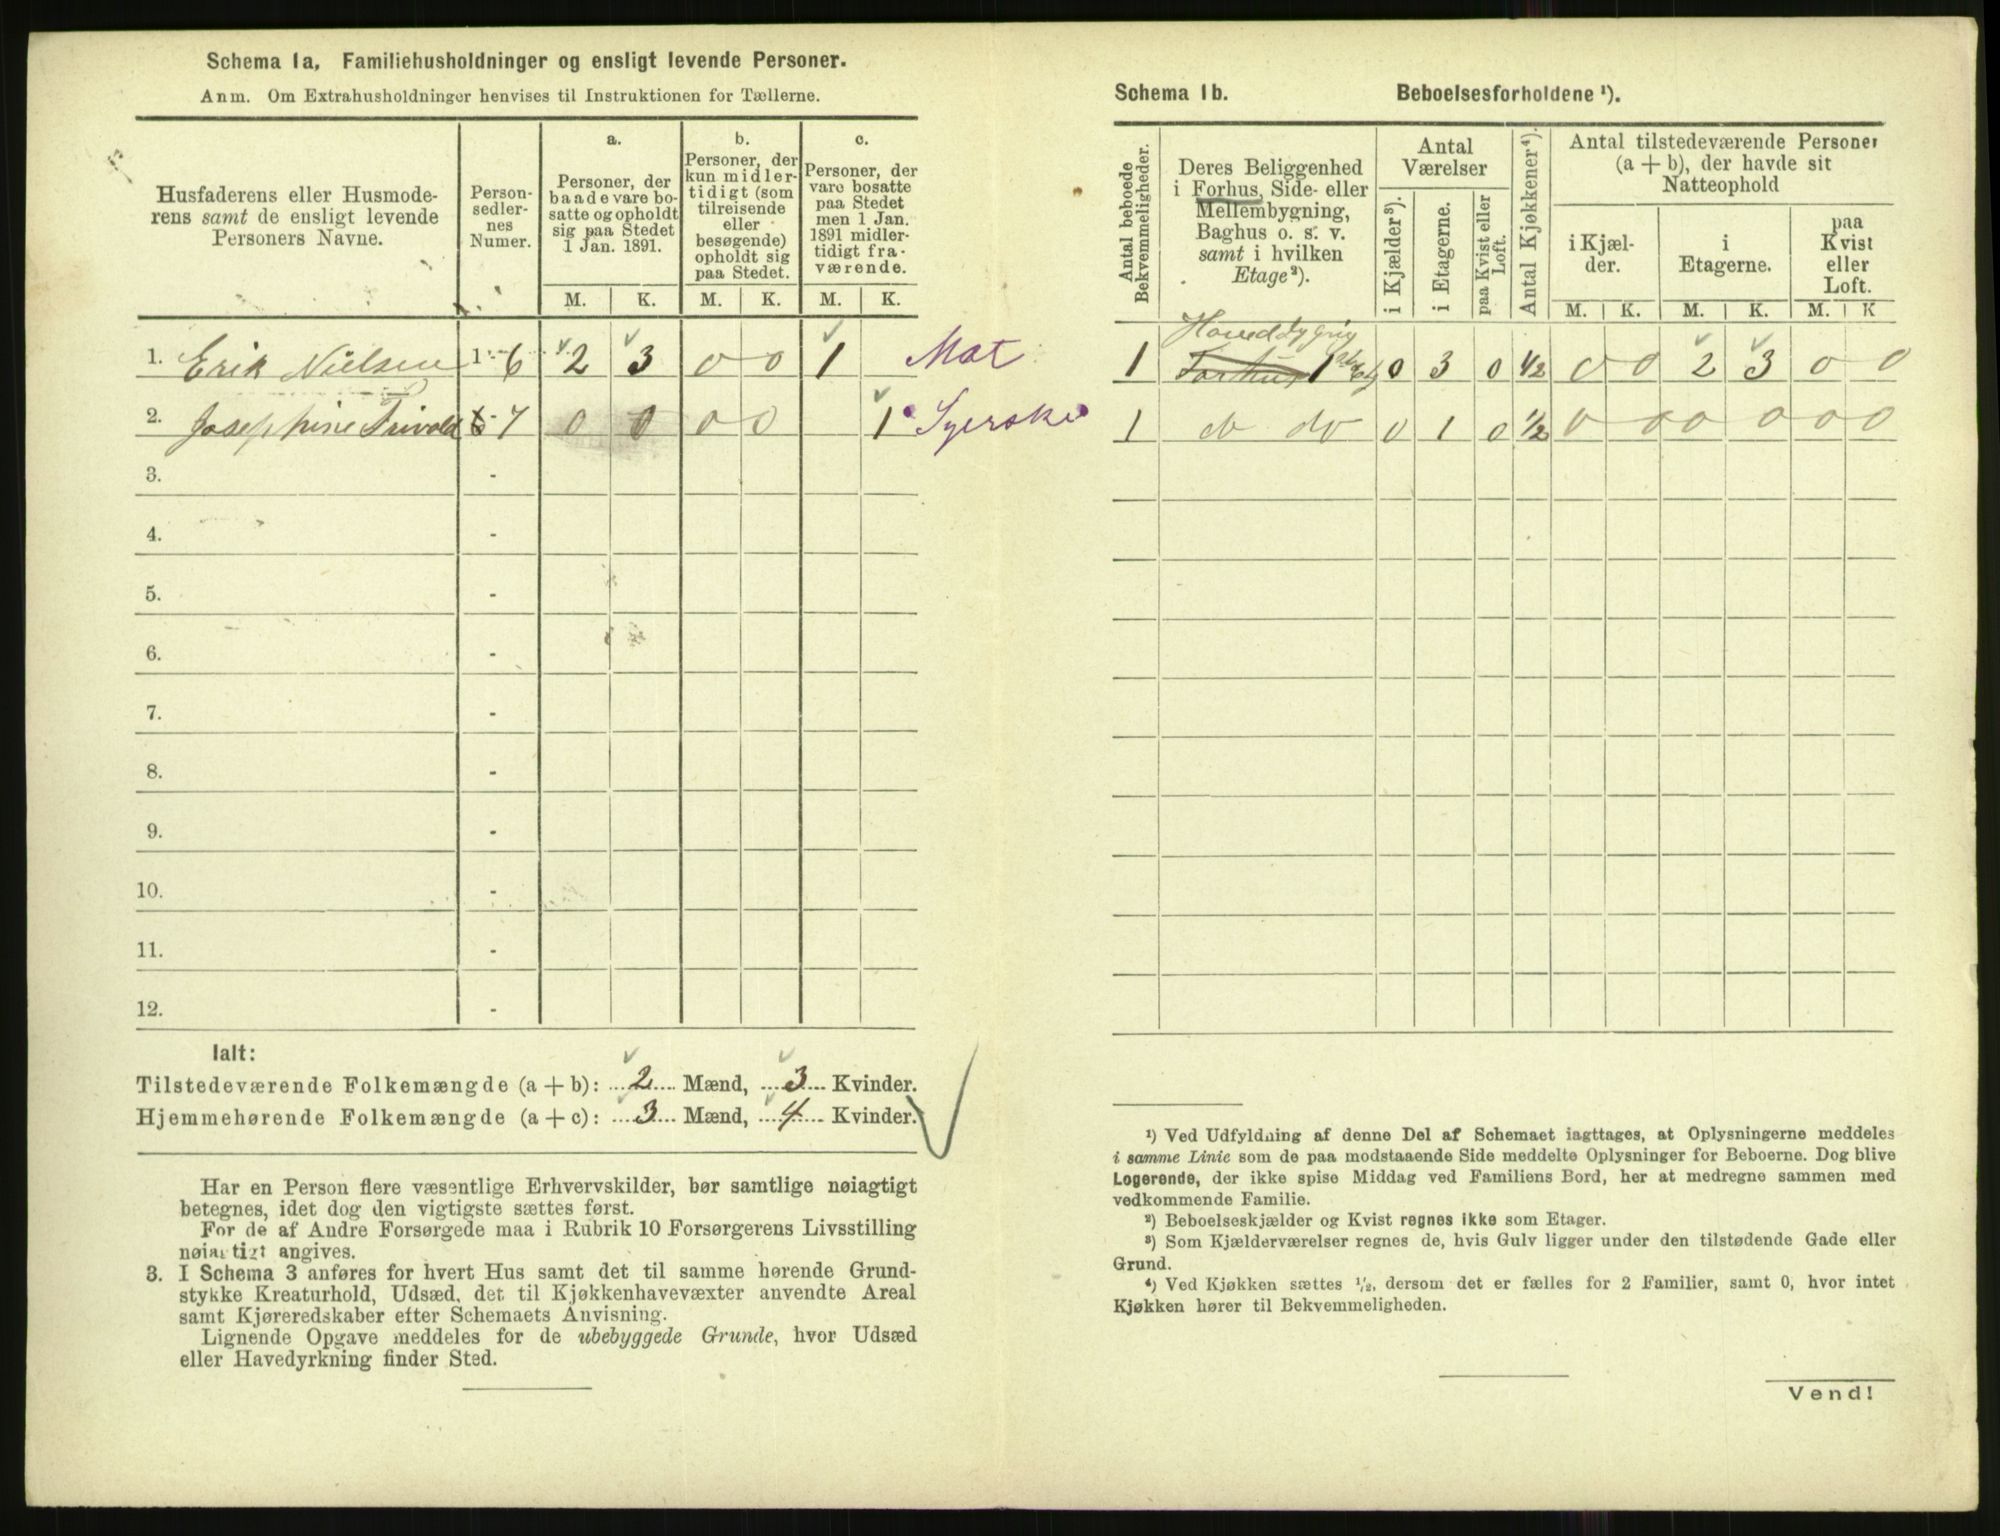 Schema 1a. Familiehusholdninger og ensligt levende Personer.
Anm. Om Extrahusholdninger henvises til Instruktionen for Tællerne.
Husfaderens eller Husmode-
rens samt de ensligt levende
Personers Navne.
Person-
sedler-
nes
Numer.
a.
Personer, der
baade vare bo-
satte og opholdt
sig paa Stedet
1 Jan. 1891.
b.
Personer, der
kun midler-
tidigt (som
tilreisende
eller
besøgende)
opholdt sig
paa Stedet.
c.
Personer, der
vare bosatte
paa Stedet
men 1 Jan.
1891 midler-
tidigt fra-
værende.
M. K. M. K. M. K.
1. Erik Nielsen 1 - 6 2 3 0 0 1 Mat
2. Josephine 7 0 0 0 0 1 Syerske
3. -
4. -
5. -
6. -
7. -
8. -
9. -
10. -
11. -
12. -
Ialt:
Tilstedeværende Folkemængde (a + b): 2 Mænd, 3 Kvinder.
Hjemmehørende Folkemængde (a + c): 3 Mænd, 4 Kvinder.
Har en Person flere væsentlige Erhvervskilder, bør samtlige nøiagtigt
betegnes, idet dog den vigtigste sættes først.
For de af Andre Forsørgede maa i Rubrik 10 Forsørgerens Livsstilling
nøiagtigt angives.
3. I Schema 3 anføres for hvert Hus samt det til samme hørende Grund-
stykke Kreaturhold, Udsæd, det til Kjøkkenhavevæxter anvendte Areal
samt Kjøreredskaber efter Schemaets Anvisning.
Lignende Opgave meddeles for de ubebyggede Grunde, hvor Udsæd
eller Havedyrkning finder Sted.
Schema 1b. Beboelsesforholdene ¹).
Antal beboede
Bekvemmeligheder.
Deres Beliggenhed
i Forhus, Side- eller
Mellembygning,
Baghus o. s. v.
samt i hvilken
Etage²).
Antal
Værelser
i Kjælder³).
i Etagerne.
paa Kvist eller
Loft.
Antal Kjøkkener⁴).
Antal tilstedeværende Personer
(a + b), der havde sit
Natteophold
i Kjæl-
der.
i
Etagerne.
paa
Kvist
eller
Loft.
M. K. M. K. M. K
Hovedbygnig
1 Forhus 1 0 3 0 1/2 0 0 2 3 0 0
1 do do 0 1 0 1/2 0 0 0 0 0 0
¹) Ved Udfyldning af denne Del af Schemaet iagttages, at Oplysningerne meddeles
i samme Linie som de paa modstaaende Side meddelte Oplysninger for Beboerne. Dog blive
Logerende, der ikke spise Middag ved Familiens Bord, her at medregne sammen med
vedkommende Familie.
²) Beboelseskjælder og Kvist regnes ikke som Etager.
³) Som Kjælderværelser regnes de, hvis Gulv ligger under den tilstødende Gade eller
Grund.
⁴) Ved Kjøkken sættes ¹/₂, dersom det er fælles for 2 Familier, samt 0, hvor intet
Kjøkken hører til Bekvemmeligheden.
Vend!